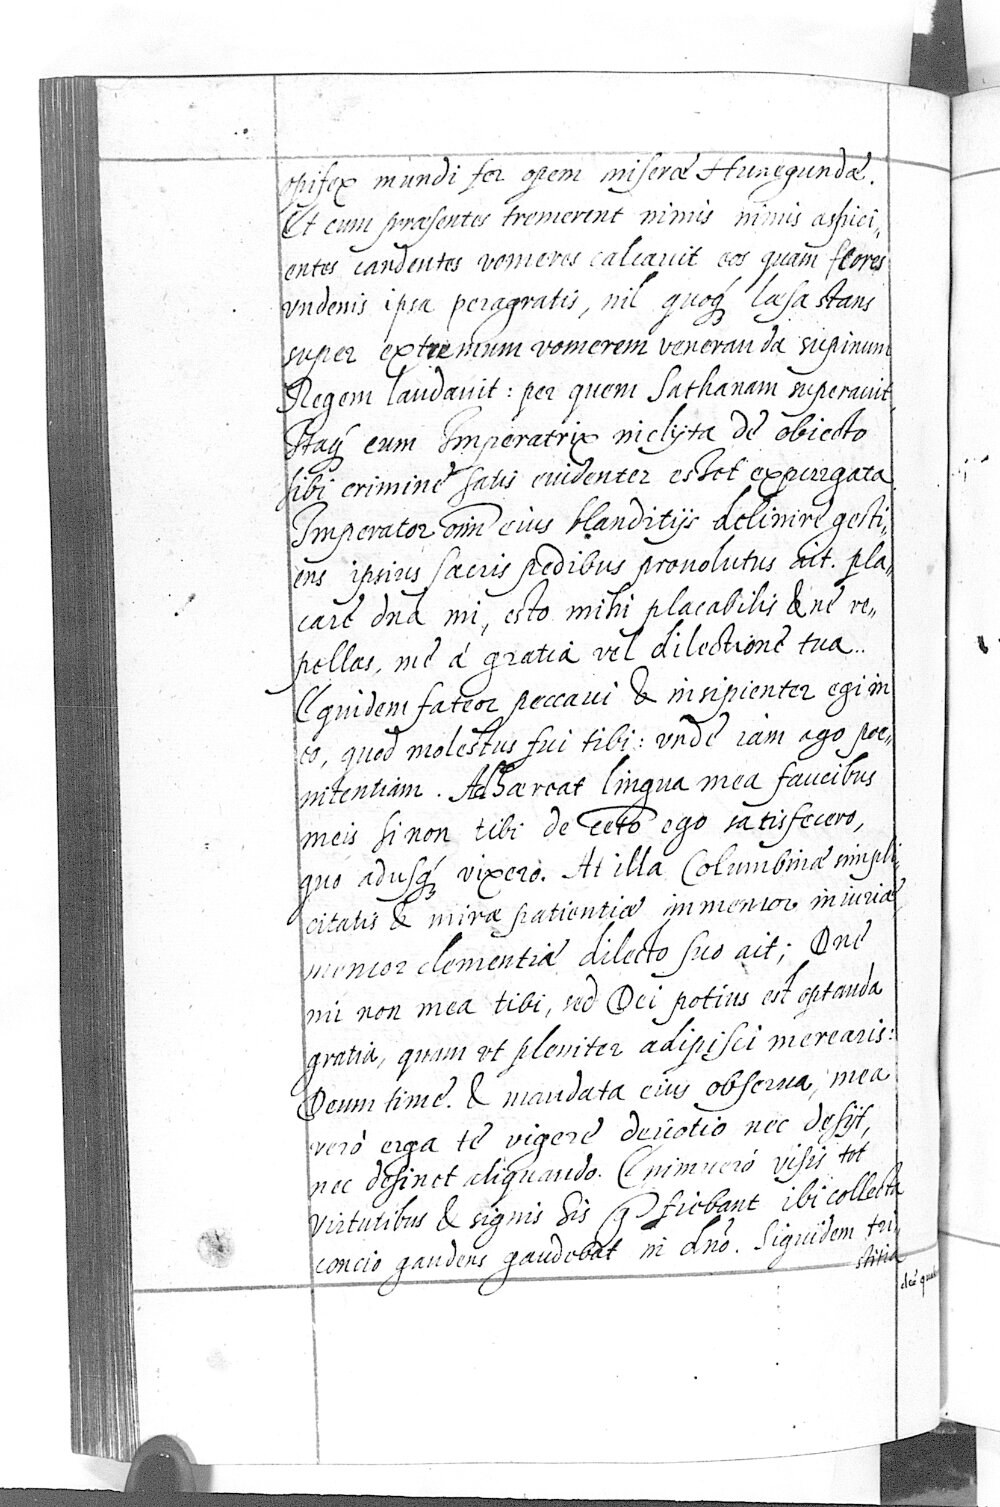 opifex mundi fer opem miseræ Hunegundæ.
Et cum præsentes tremerent nimis nimis aspici„
entes candentes vomeres calcavit eos quam flores
vndenis ipsa peragratis, nil quoq́ʒ læsa stans
super extremum vomerem veneranda supinum
Regem laudauit: per quem Sathanam superauit.
Itaq́ʒ cum Imperatrix inclyta de obiecto
sibi criminè satis euidenter esset expurgata
Imperator om̄n eius blanditijs delinirè gesti„
ens ipsius sacris pedibus prouolutus ait. pla„
carè dn̄a mi, esto mihi placabilis & nè re„
pellas, mè à gratia vel dilectionè tua..
Equidem fateor peccaui & insipienter egi in
eo, quod molestus fui tibi: vndè iam ago poe„
nitentiam. Adhæreat lingua mea faucibus
meis si non tibi de cet̄o ego satisfecero,
quo adusq́ʒ vixero. At illa Columbinæ simpli„
citatis & miræ patientiæ immemor iniuriæ,
memor clementiæ dilecto suo ait; Dn̄e
mi non mea tibi, sed Dei potius est optanda
gratia, quam vt pleniter adipisci merearis:
Deum timè. & mandata eius obserua, mea
verò erga tè vigerè deuotio nec desijt,
nec desinet aliquando. Enimuerò visis tot
virtutibus & signis his q̄ fiebant ibi collecta
concio gaudens gaudebat in dn̄o. Siquidem tri„
stitia